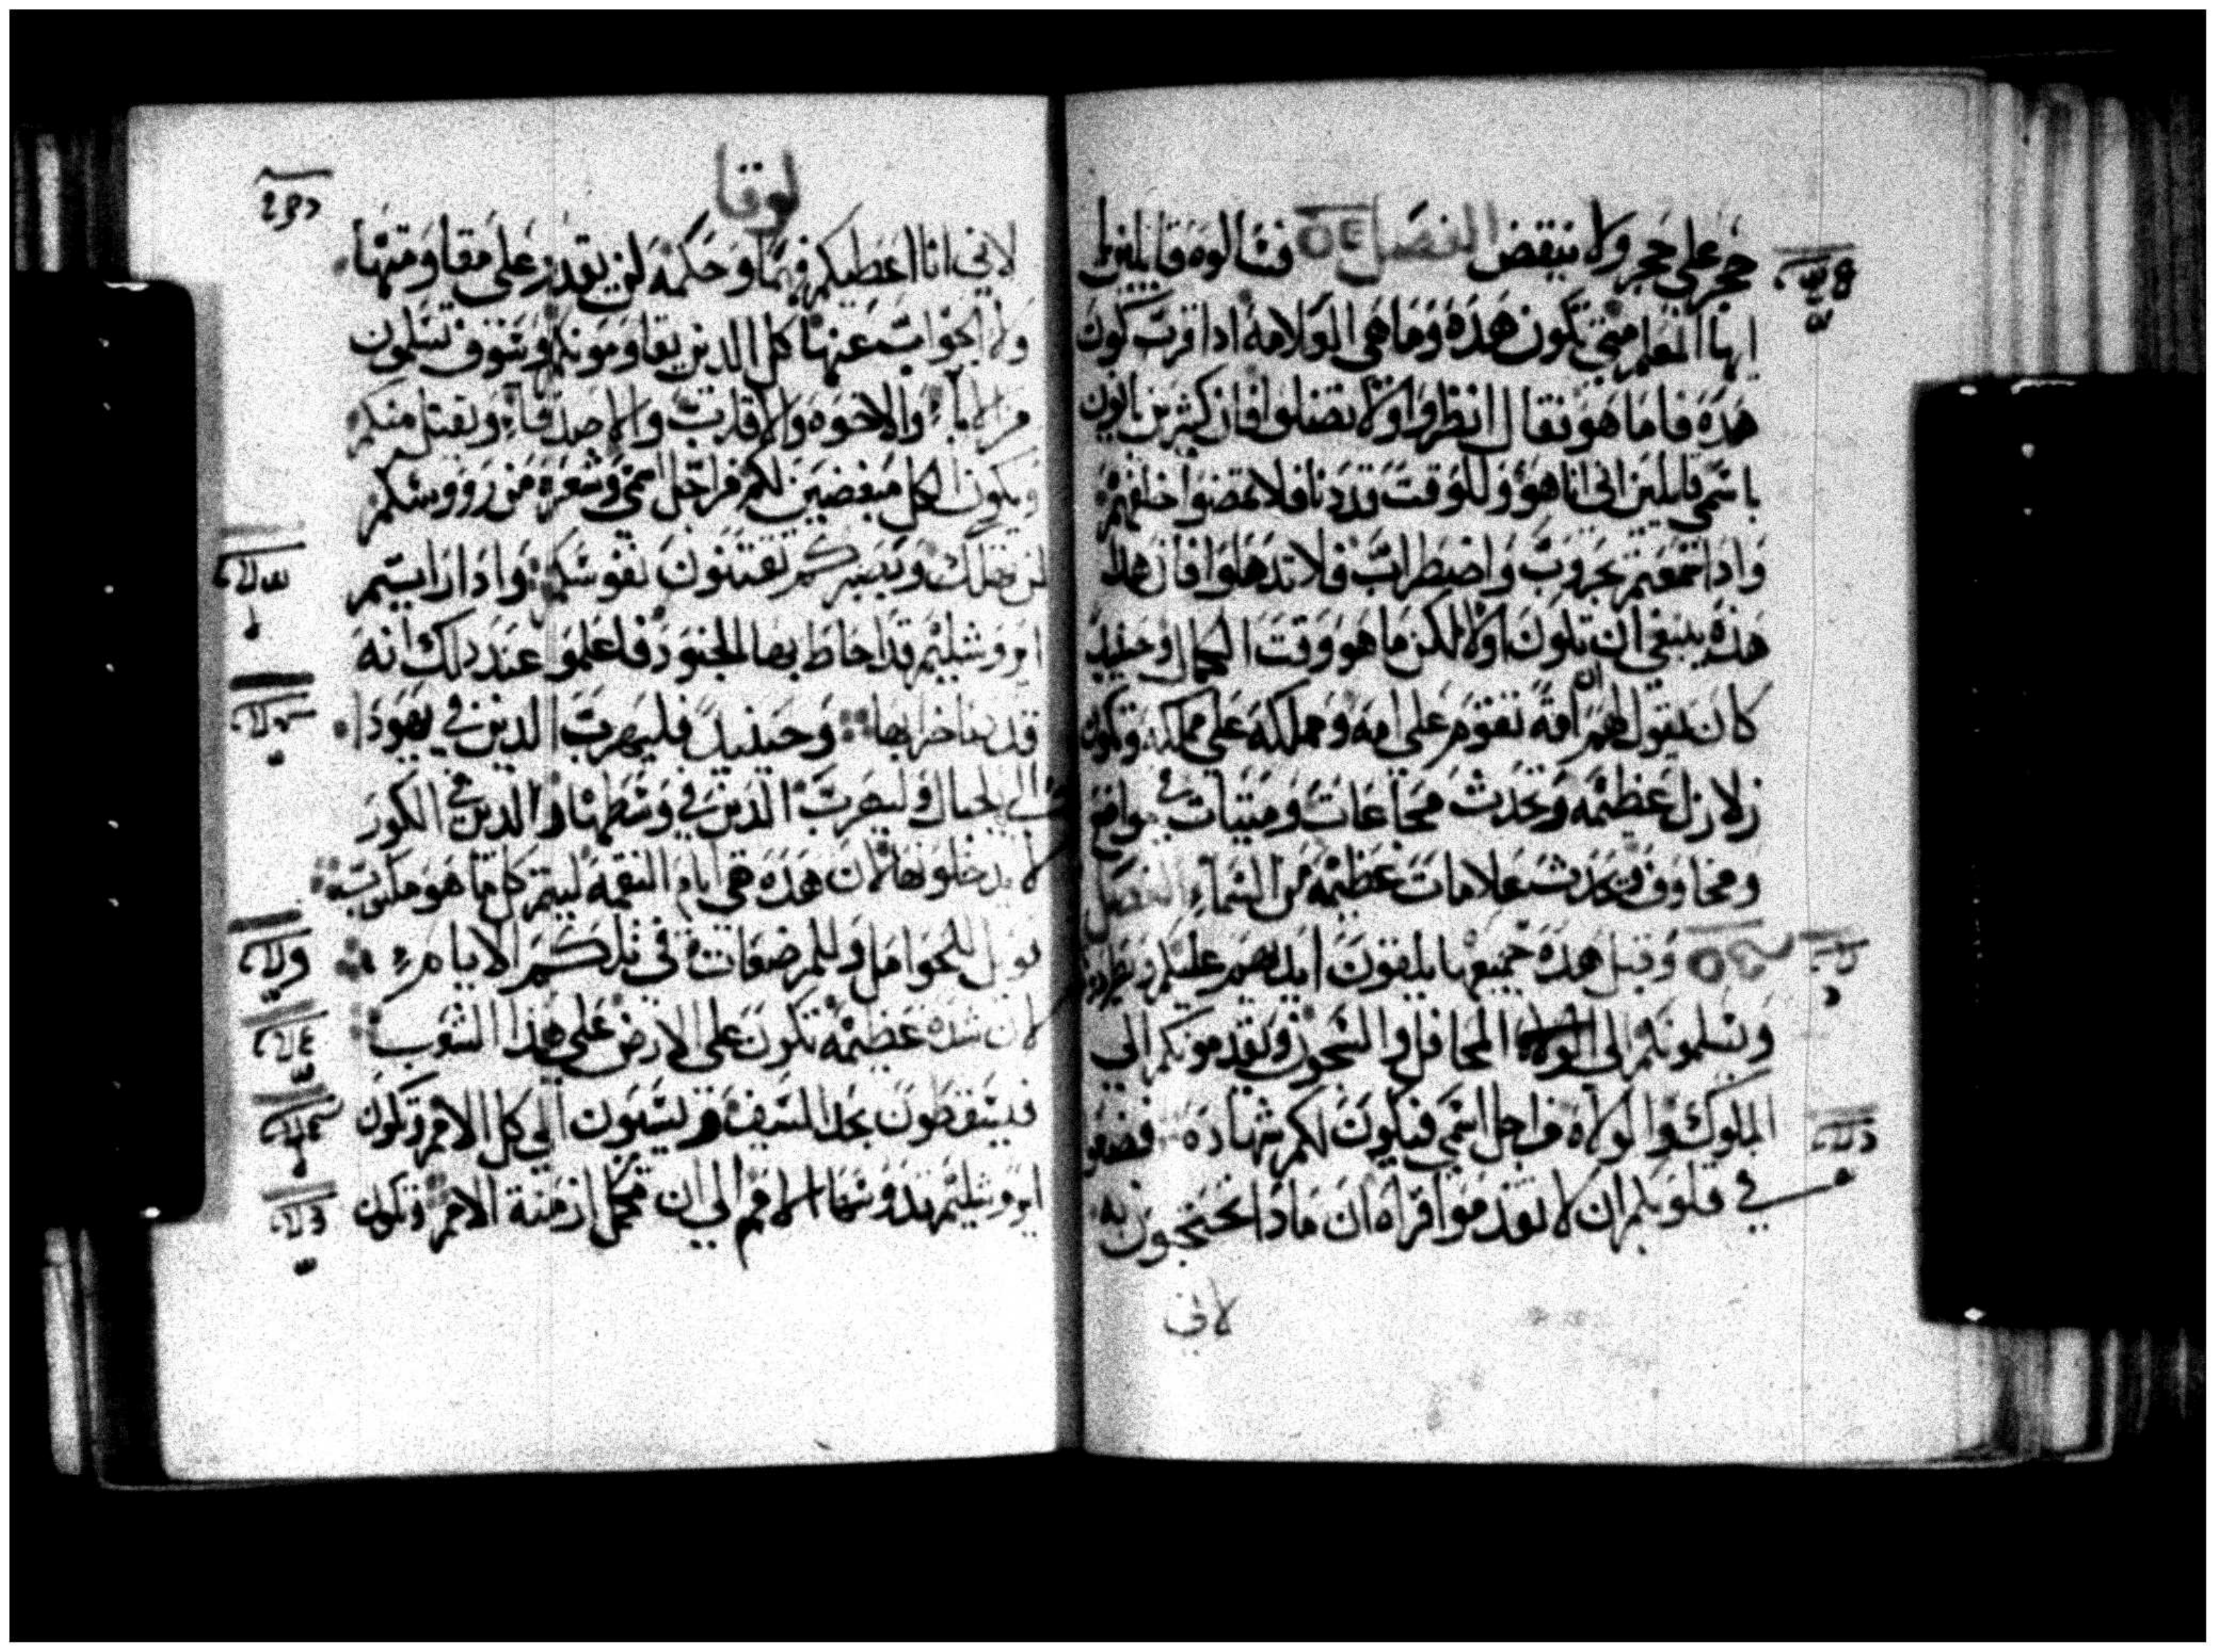 حجر علي حجر ولا ينقض الفصل فسالوه قايلين
ايها المعلم متي تكون هذه وما هي العلامه اذا قرب كون
هذه فاما هو فقال انظروا ولا تضلوا فان كثيرين ياتون
باسمي قايلين اني انا هو وللوقت قد دنا فلا تمضوا خلفهم
واذا سمعتم بحروب واضطراب فلا تذهلوا فان هذا
هذه ينبغي ان تكون اولا لكن ما هو وقت الكمال وحينيذ
كان يقول لهم ان امة تقوم علي امه ومملكه علي مملكه وتكون
زلازل عظيمه وتحدث مجاعات وميتات في مواضع
ومخاوف وتحدث علامات عظيمه من السماء الفصل
وقبل هذه جميعها يلقون ايديهم عليكم
ويسلمونكم الي المحافل والسجون ويقدمونكم الي
الملوك والولاه من اجل اسمي فيكون لكم شهاده فضعوا
في قلوبكم ان لا تقدموا قراه ان ماذا تحتجون به
لاني
لوقا
لاني انا اعطيكم فهما وحكمه لن يقدر علي مقاومتها
ولا الجواب عنها كل الذين يقاومونكم وسوف تسلمون
من الاباء والاخوه والاقارب والاصدقاء ويقتل منكم
ويكون الكل مبغضين لكم من اجل اسمي وشعرة من رووسكم
لن تهلك وبصبركم تقتنون نفوسكم واذا رايتم
ايروشليم قد احاط بها الجنود فاعلموا عند ذلك انه
قد دنا خرابها وحينيذ فليهرب الذين في يهوذا
الي الجبال وليهرب الذين في وسطها والذين في الكور
لا يدخلونها لان هذه هي ايام النقمه ليتم كل ما هو مكتوب
فويل للحوامل وللمرضعات في تلك الايام
لان شدة عظيمه تكون علي الارض علي هذا الشعب
فيسقطون بحد السيف ويسبون الي كل الامم وتكون
ايروشليم مدوسها الامم الي ان تكمل ازمنة الامم وتكون